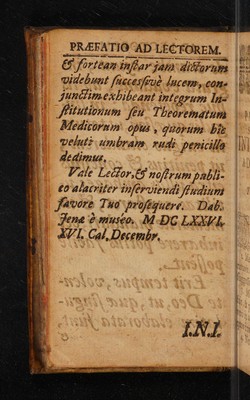 PRÆFATIO AD LECTOREM.
& fortean instar jam dictorum
videbunt successivè lucem, con-
junctim exhibeant integrum In-
stitutionum seu Theorematum
Medicorum opus, quorum hîc
veluti umbram rudi penicillo
dedimus.
Vale Lector, & nostrum publi-
co alacriter inserviendi studium
favore Tuo prosequere. Dab.
Jenæ è museo. M DC LXXVI.
XVI. Cal. Decembr.
I.N.I.